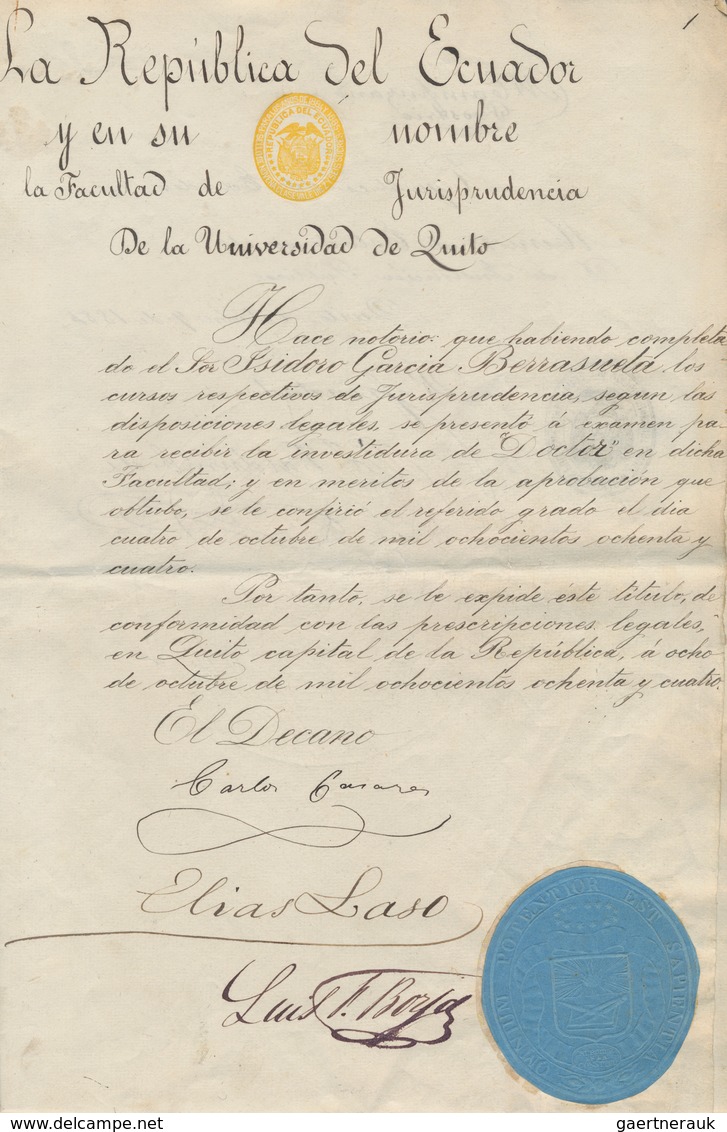 1
La República del Ecuador
y en su nombre
REPUBLICA DEL ECUADOR
la Facultad de Jurisprudencia
De la Universidad de Quito
Hace notorio: que habiendo completa
do el Sor Isidoro Garcia Berrasueta los
cursos respectivos de Jurisprudencia, segun las
disposiciones legales, se presentó á examen pa-
ra recibir la investidura de "Doctor" en dicha
Facultad; y en meritos de la aprobación que
obtubo, se le confirió el referido grado el dia
cuatro de octubre de mil ochocientos ochenta y
cuatro.
Por tanto, se le expide éste titulo, de
conformidad con las prescripciones legales,
en Quito capital de la República, á ocho
de octubre de mil ochocientos ochenta y cuatro.
El Decano
Carlos Casares
Elias Laso
Luis F. Borja
OMNIBUS POTENTIOR EST SAPIENTIA
delcampe.net
gaertnerauk